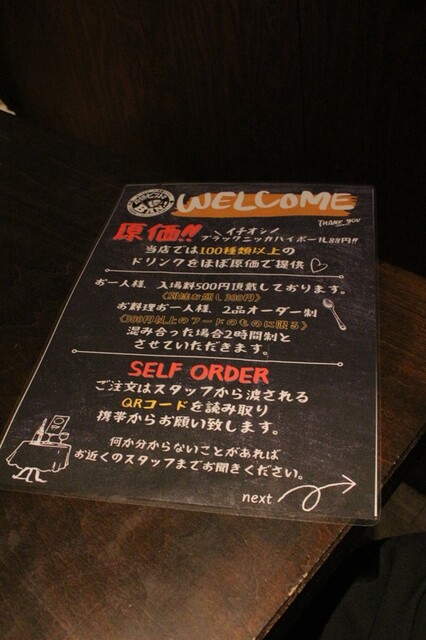 WELCOME
THANK YOU
原価!!
＼イチオシ／
ブラックニッカハイボール88円!!
当店では100種類以上の
ドリンクをほぼ原価で提供♡
お一人様、入場料500円頂戴しております。
《別途お通し300円》
お料理お一人様、2品オーダー制
《300円以上のフードのものに限る》
混み合った場合2時間制と
させていただきます。
SELF ORDER
ご注文はスタッフから渡される
QRコードを読み取り
携帯からお願い致します。
何か分からないことがあれば
お近くのスタッフまでお聞きください。
next